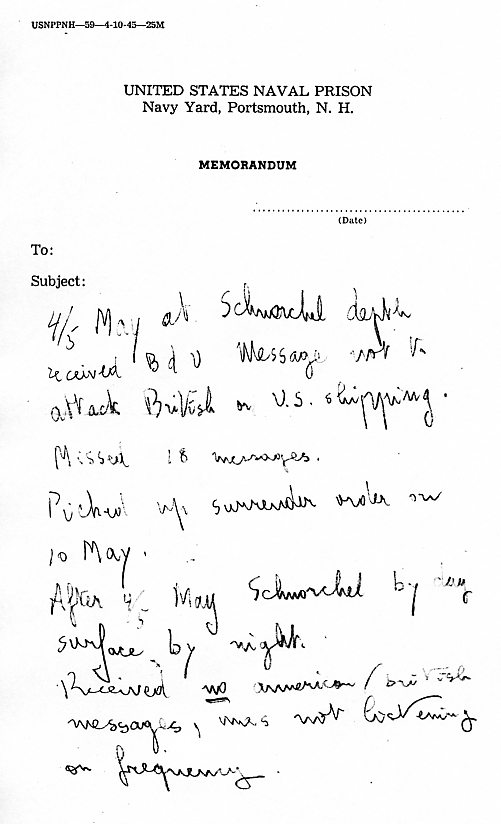 USNPPNH—59—4-10-45—25M
UNITED STATES NAVAL PRISON
Navy Yard, Portsmouth, N. H.
MEMORANDUM
(Date)
To:
Subject:
4/5 May at Schnorchel depth
received B d U Message not to
attack British or U.S. shipping.
Missed 18 messages.
Picked up surrender order on
10 May.
After 4/5 May Schnorchel by day
surface by night.
Received no american/british
messages, was not listening
on frequency.